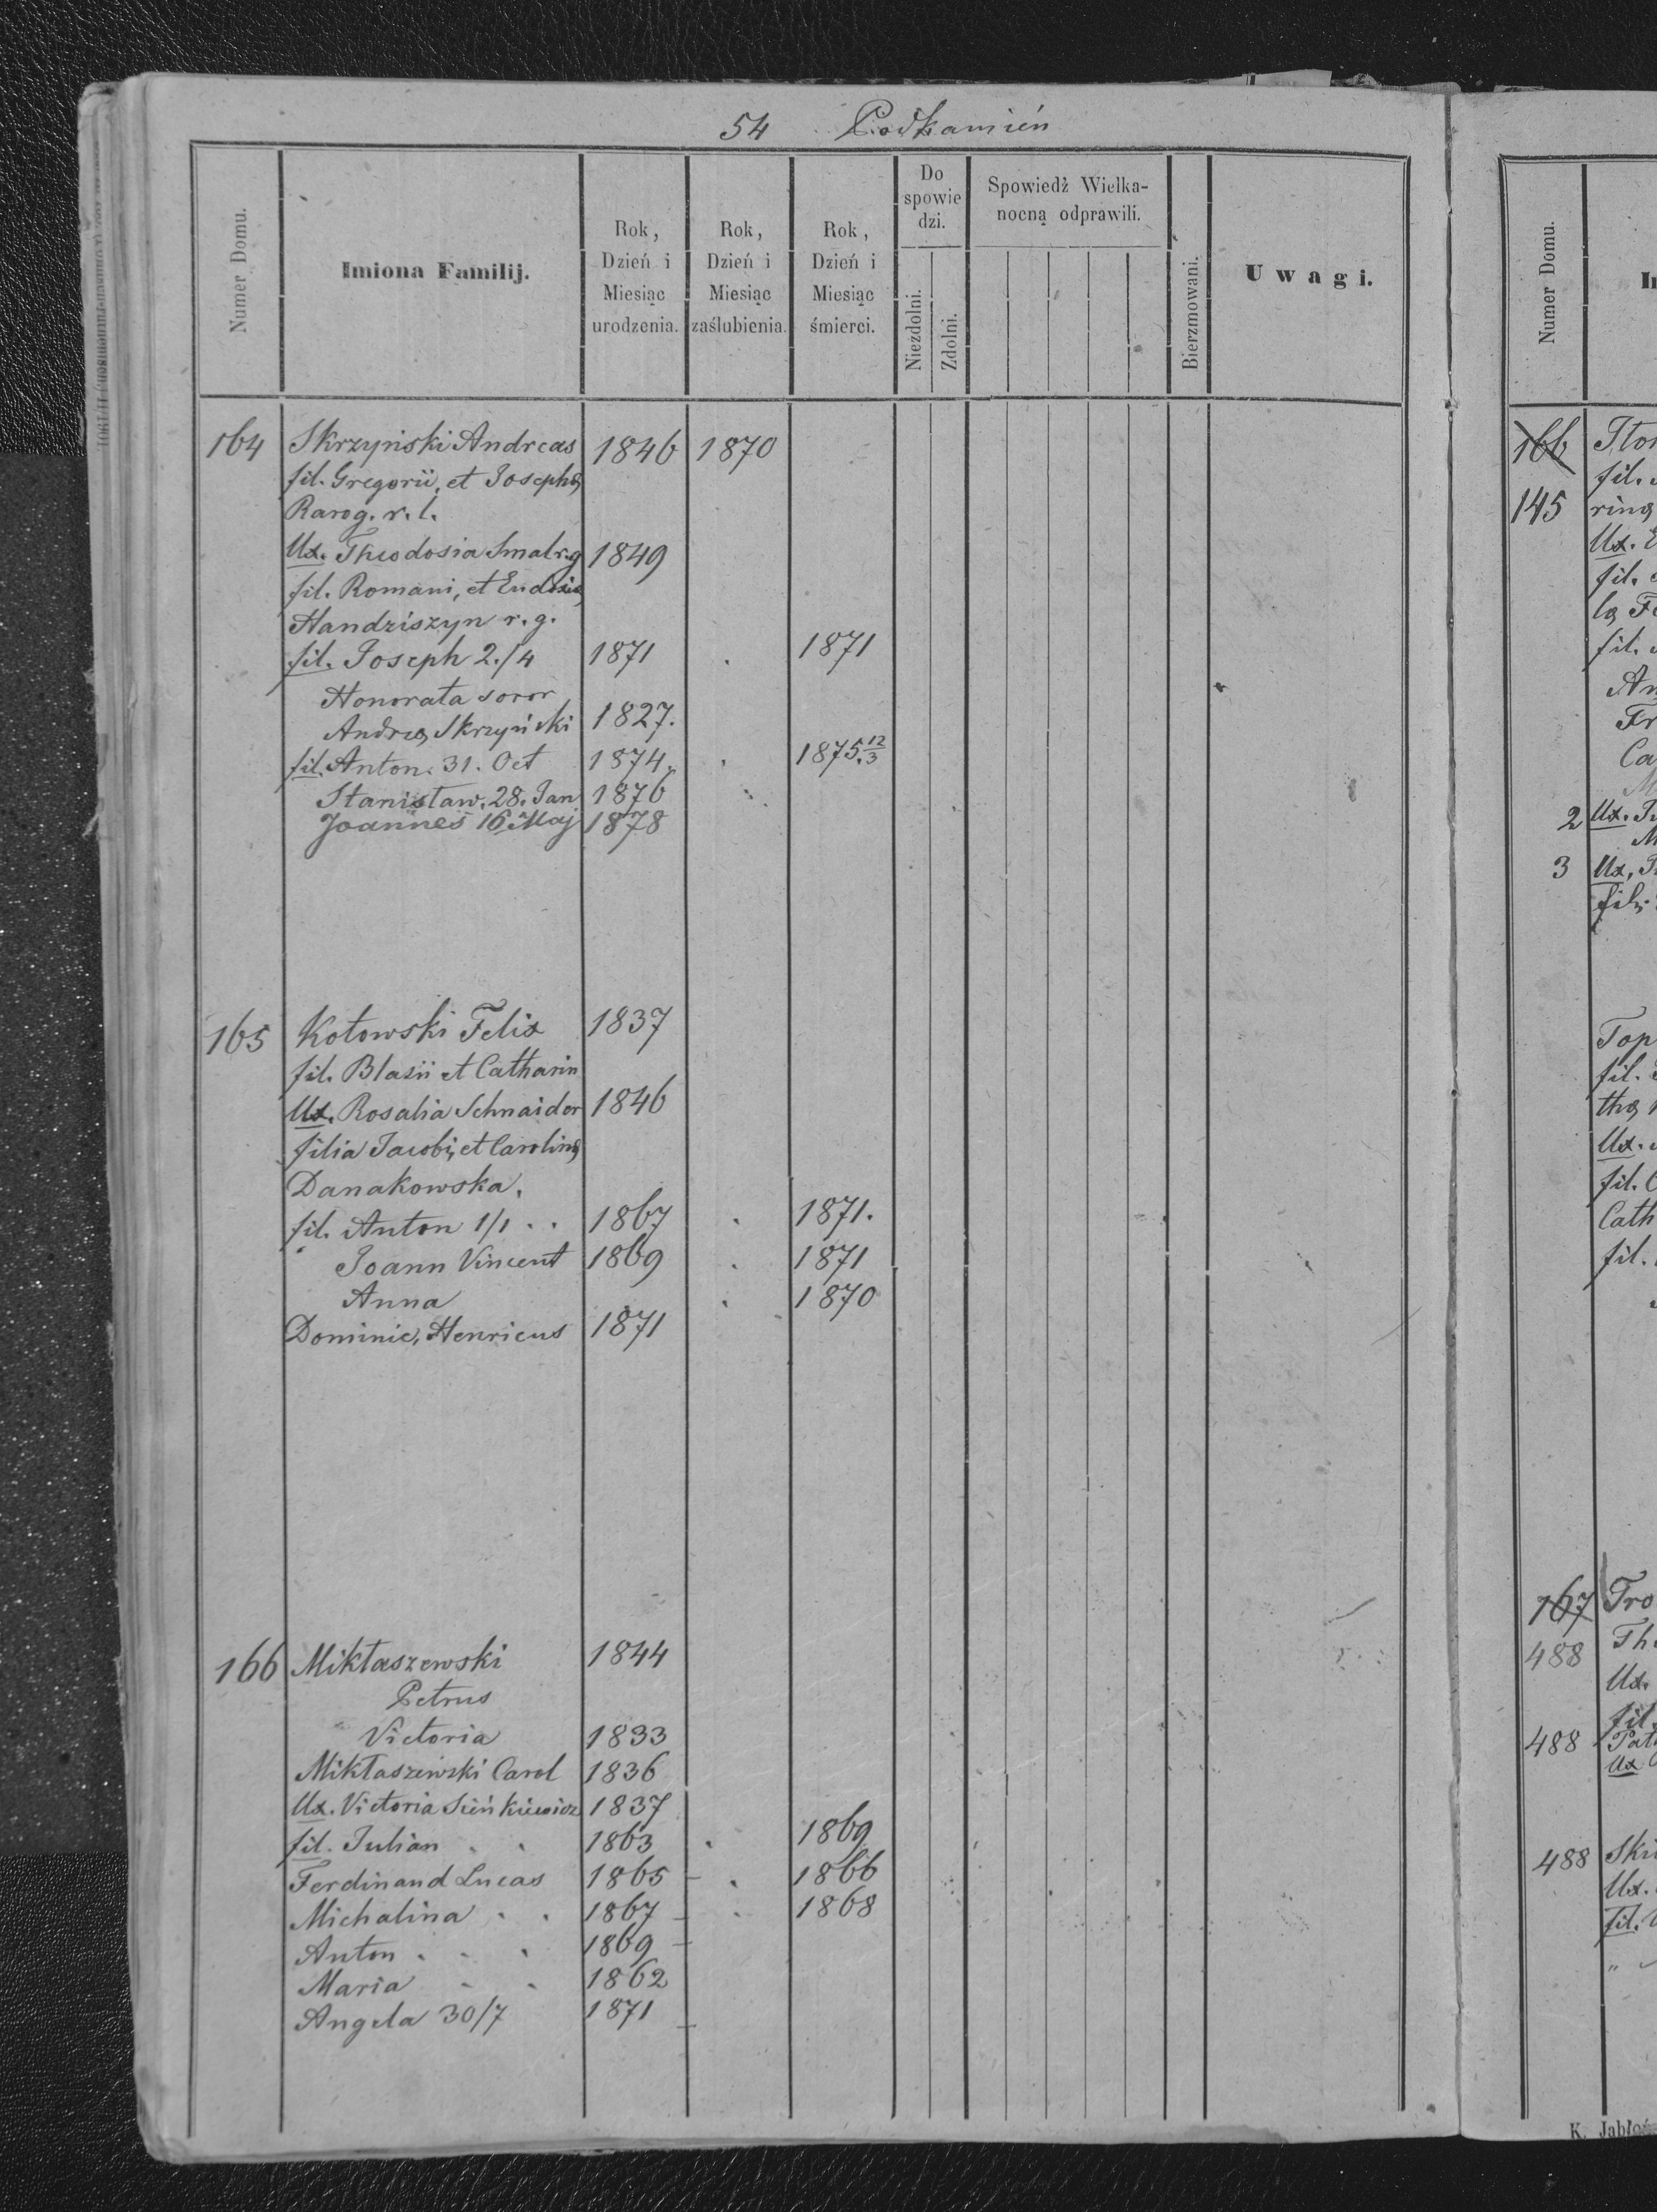 54 Podkamień
Numer Domu.
Imiona Familij.
Rok, Dzień i Miesiąc urodzenia.
Rok, Dzień i Miesiąc zaślubienia.
Rok, Dzień i Miesiąc śmierci.
Do spowie dzi.
Niezdolni.
Zdolni.
Spowiedź Wielka-
nocną odprawili.
Bierzmowani.
Uwagi.
164 Skrzyński Andreas 1846 1870
fil. Gregorii, et Josephę
Rarog. r. l.
Ux. Theodosia Smal r.g 1849
fil. Romani, et Eudoxię
Handziszyn r. g.
fil. Joseph 2./4 1871 . 1871
Honorata soror
Andreę Skrzyński 1827.
fil. Anton. 31. Oct 1874. . 1875. 12/3
Stanisław. 28. Jan 1876
Joannes 16 Maj 1878
165 Kotowski Felix 1837
fil. Blasii et Catharin
Ux. Rosalia Schnaider 1846
filia Jacobi, et Carolinę
Danakowska.
fil. Anton 1/1 . . 1867 . 1871.
Joann Vincent 1869 . 1871
Anna . 1870
Dominic, Henricus 1871
166 Mikłaszewski 1844
Petrus
Victoria 1833
Mikłaszewski Carol 1836
Ux. Victoria Sieńkiewicz 1837
fil. Julian . . 1863 . 1869
Ferdinand Lucas 1865 - . 1866
Michalina . . 1867 - . 1868
Anton . . . 1869 -
Maria . . 1862
Angela 30/7 1871 -
Numer Domu.
166
fil.
145 rinę
Ux.
fil.
fil.
2 Ux.
3 Ux,
Top
fil.
thę
Ux.
fil. C
Cath
fil.
167 Tro
488 Th
Ux.
fil.
488
Ux
488
Ux.
fil.
K. Jabłoń